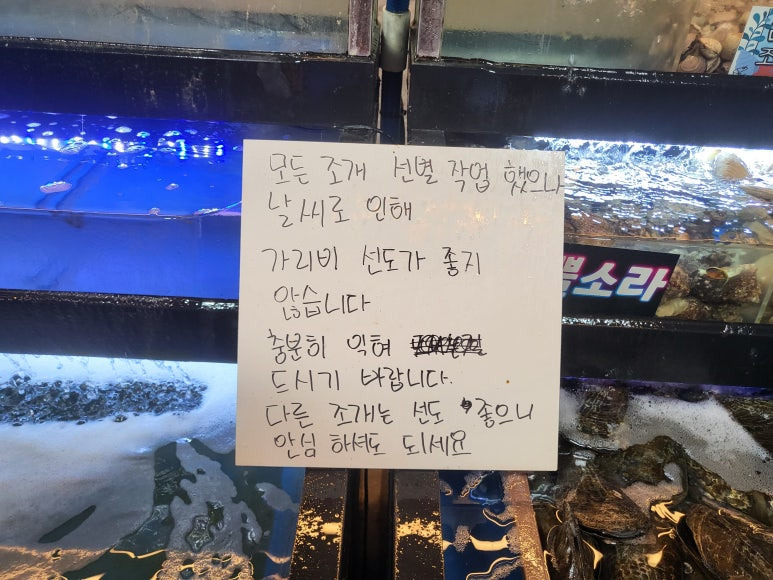 모든 조개 선별 작업 했으나
날씨로 인해
가리비 선도가 좋지
않습니다
충분히 익혀
드시기 바랍니다.
다른 조개는 선도 좋으니
안심 하셔도 되세요
뿔소라